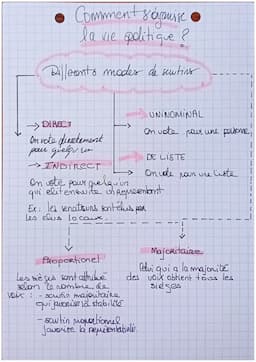 Comment s'organise
la vie politique ?
Différents modes de scrutins
→ DIRECT
On vote directement
pour quelqu'un
→ INDIRECT
On vote pour quelqu'un
qui elit ensuite un représentant
Ex : les sénateurs sont élus par
les élus locaux
→ UNINOMINAL
On vote pour une personne
→ DE LISTE
On vote pour une liste
Proportionel
Les sièges sont attribué
selon le nombre de
voix : - scrutin majoritaire
qui favorise la stabilité
- scrutin proportionnel
favorise la représentabilité.
Majoritaire
Celui qui a la majorité
des voix obtient tous les
sièges